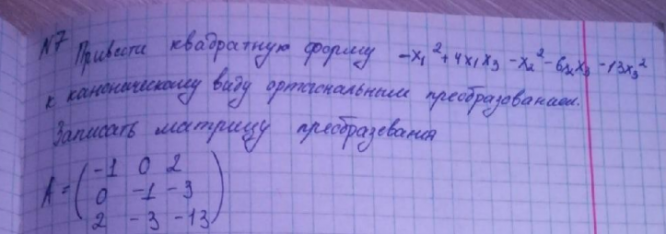 №7 Привести квадратную форму -x₁²+4x₁x₃-x₂²-6x₂x₃-13x₃²
к каноническому виду ортогональным преобразованием.
Записать матрицу преобразования
A = ( -1 0 2
0 -1 -3
2 -3 -13 )